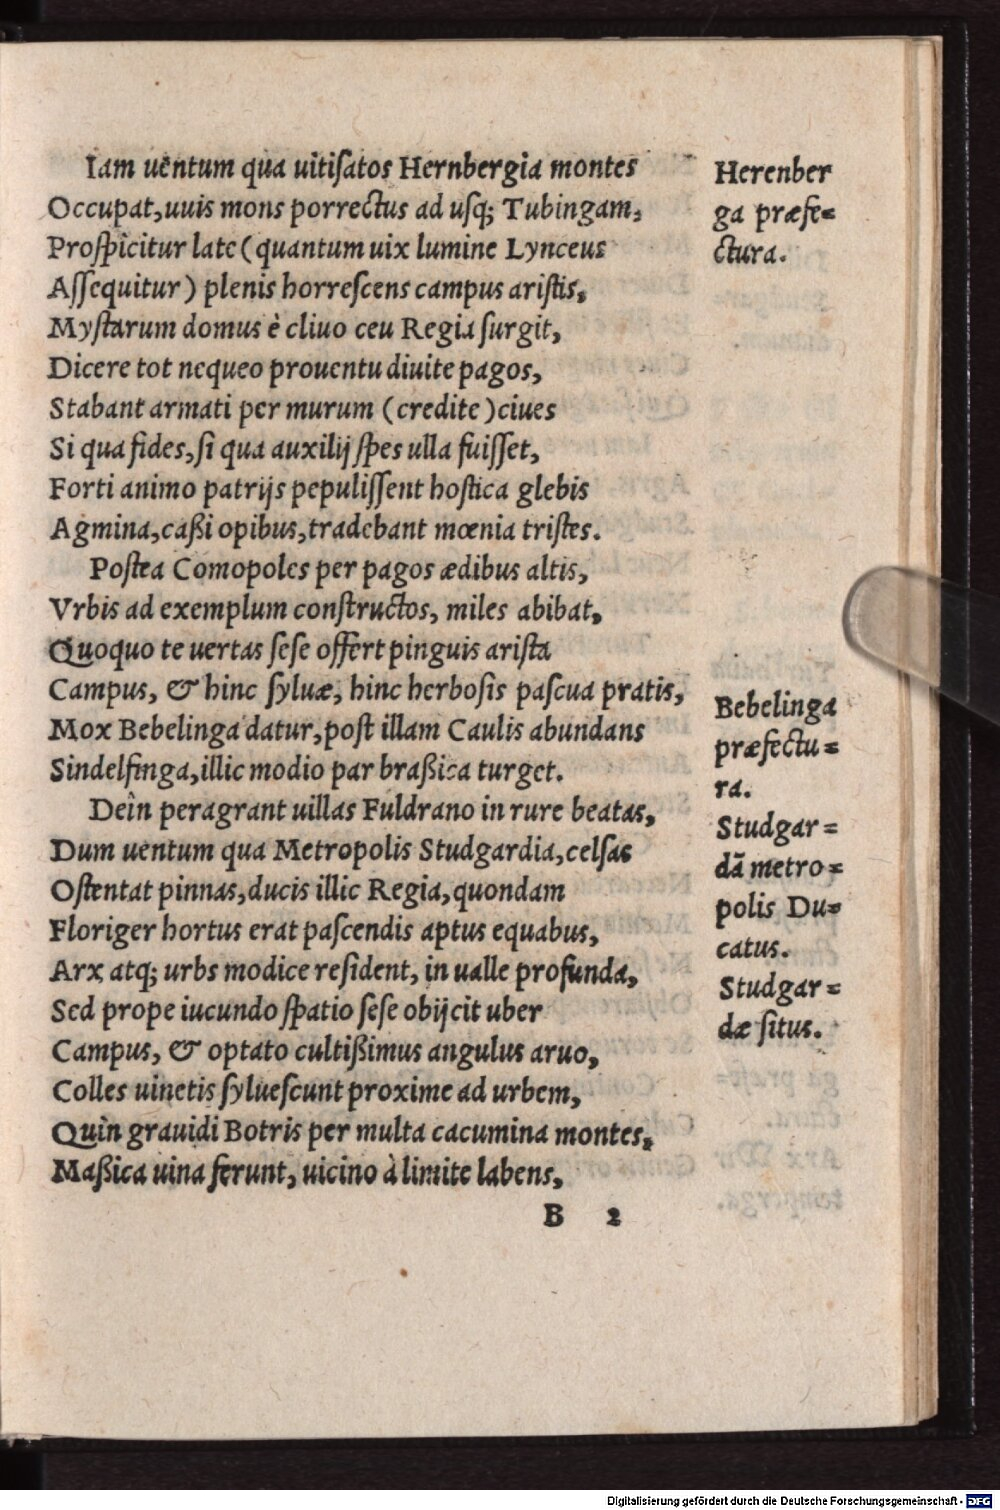 Iam uêntum qua uitiſatos Hernbergia montes
Occupat, uuis mons porrectus ad uſq; Tubingam,
Proſpicitur late (quantum uix lumine Lynceus
Aſſequitur) plenis horreſcens campus ariſtis,
Myſtarum domus è cliuo ceu Regia ſurgit,
Dicere tot nequeo prouentu diuite pagos,
Stabant armati per murum (credite) ciues
Si qua fides, ſi qua auxilij ſpes ulla fuiſſet,
Forti animo patrijs pepuliſſent hoſtica glebis
Agmina, caßi opibus, tradebant mœnia triſtes.
Poſtea Comopoles per pagos ædibus altis,
Vrbis ad exemplum conſtructos, miles abibat,
Quoquo te uertas ſeſe offert pinguis ariſta
Campus, & hinc ſyluæ, hinc herboſis paſcua pratis,
Mox Bebelinga datur, poſt illam Caulis abundans
Sindelfinga, illic modio par braßica turget.
Deîn peragrant uillas Fuldrano in rure beatas,
Dum uentum qua Metropolis Studgardia, celſas
Oſtentat pinnas, ducis illic Regia, quondam
Floriger hortus erat paſcendis aptus equabus,
Arx atq; urbs modice reſident, in ualle profunda,
Sed prope iucundo ſpatio ſeſe obijcit uber
Campus, & optato cultißimus angulus aruo,
Colles uinetis ſylueſcunt proxime ad urbem,
Quìn grauidi Botris per multa cacumina montes,
Maßica uina ferunt, uicino à limite labens,
B 2
Herenber
ga præfe=
ctura.
Bebelinga
præfectu=
ra.
Studgar=
dā metro=
polis Du=
catus.
Studgar=
dæ ſitus.
Digitalisierung gefördert durch die Deutsche Forschungsgemeinschaft - DFG